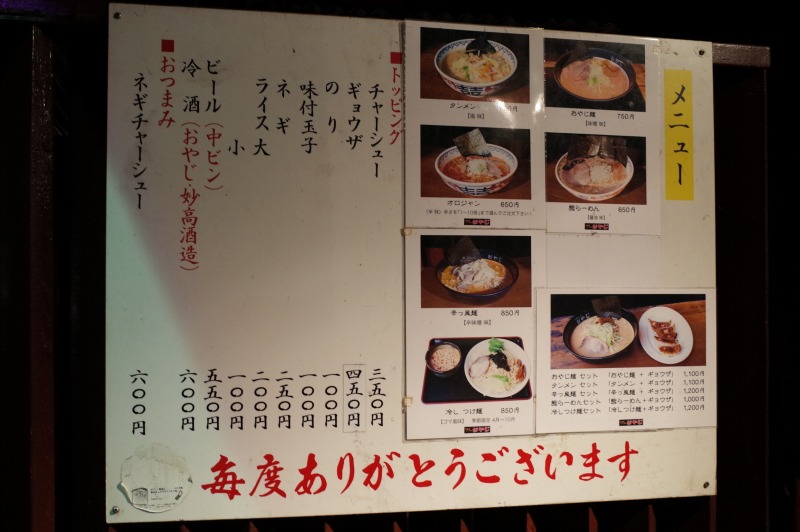 メニュー
おやじ麺 750円
【味噌 味】
タンメン
【塩 味】
熊らーめん 850円
【醤油 味】
オロジャン 850円
辛っ風麺 850円
【辛味噌 味】
冷し つけ麺 850円
【ゴマ風味】 季節限定 4月~10月
おやじ麺 セット 「おやじ麺 + ギョウザ」 1,100円
タンメン セット 「タンメン + ギョウザ」 1,100円
辛っ風麺 セット 「辛っ風麺 + ギョウザ」 1,200円
熊らーめんセット 「熊らーめん+ギョウザ」 1,000円
冷しつけ麺セット 「冷しつけ麺+ギョウザ」 1,200円
■トッピング
チャーシュー 三五〇円
ギョウザ 四五〇円
のり 一〇〇円
味付玉子 一〇〇円
ネギ 二五〇円
ライス大 二〇〇円
小 一〇〇円
ビール(中ビン) 五五〇円
冷酒(おやじ・妙高酒造) 六〇〇円
■おつまみ
ネギチャーシュー 六〇〇円
毎度ありがとうございます